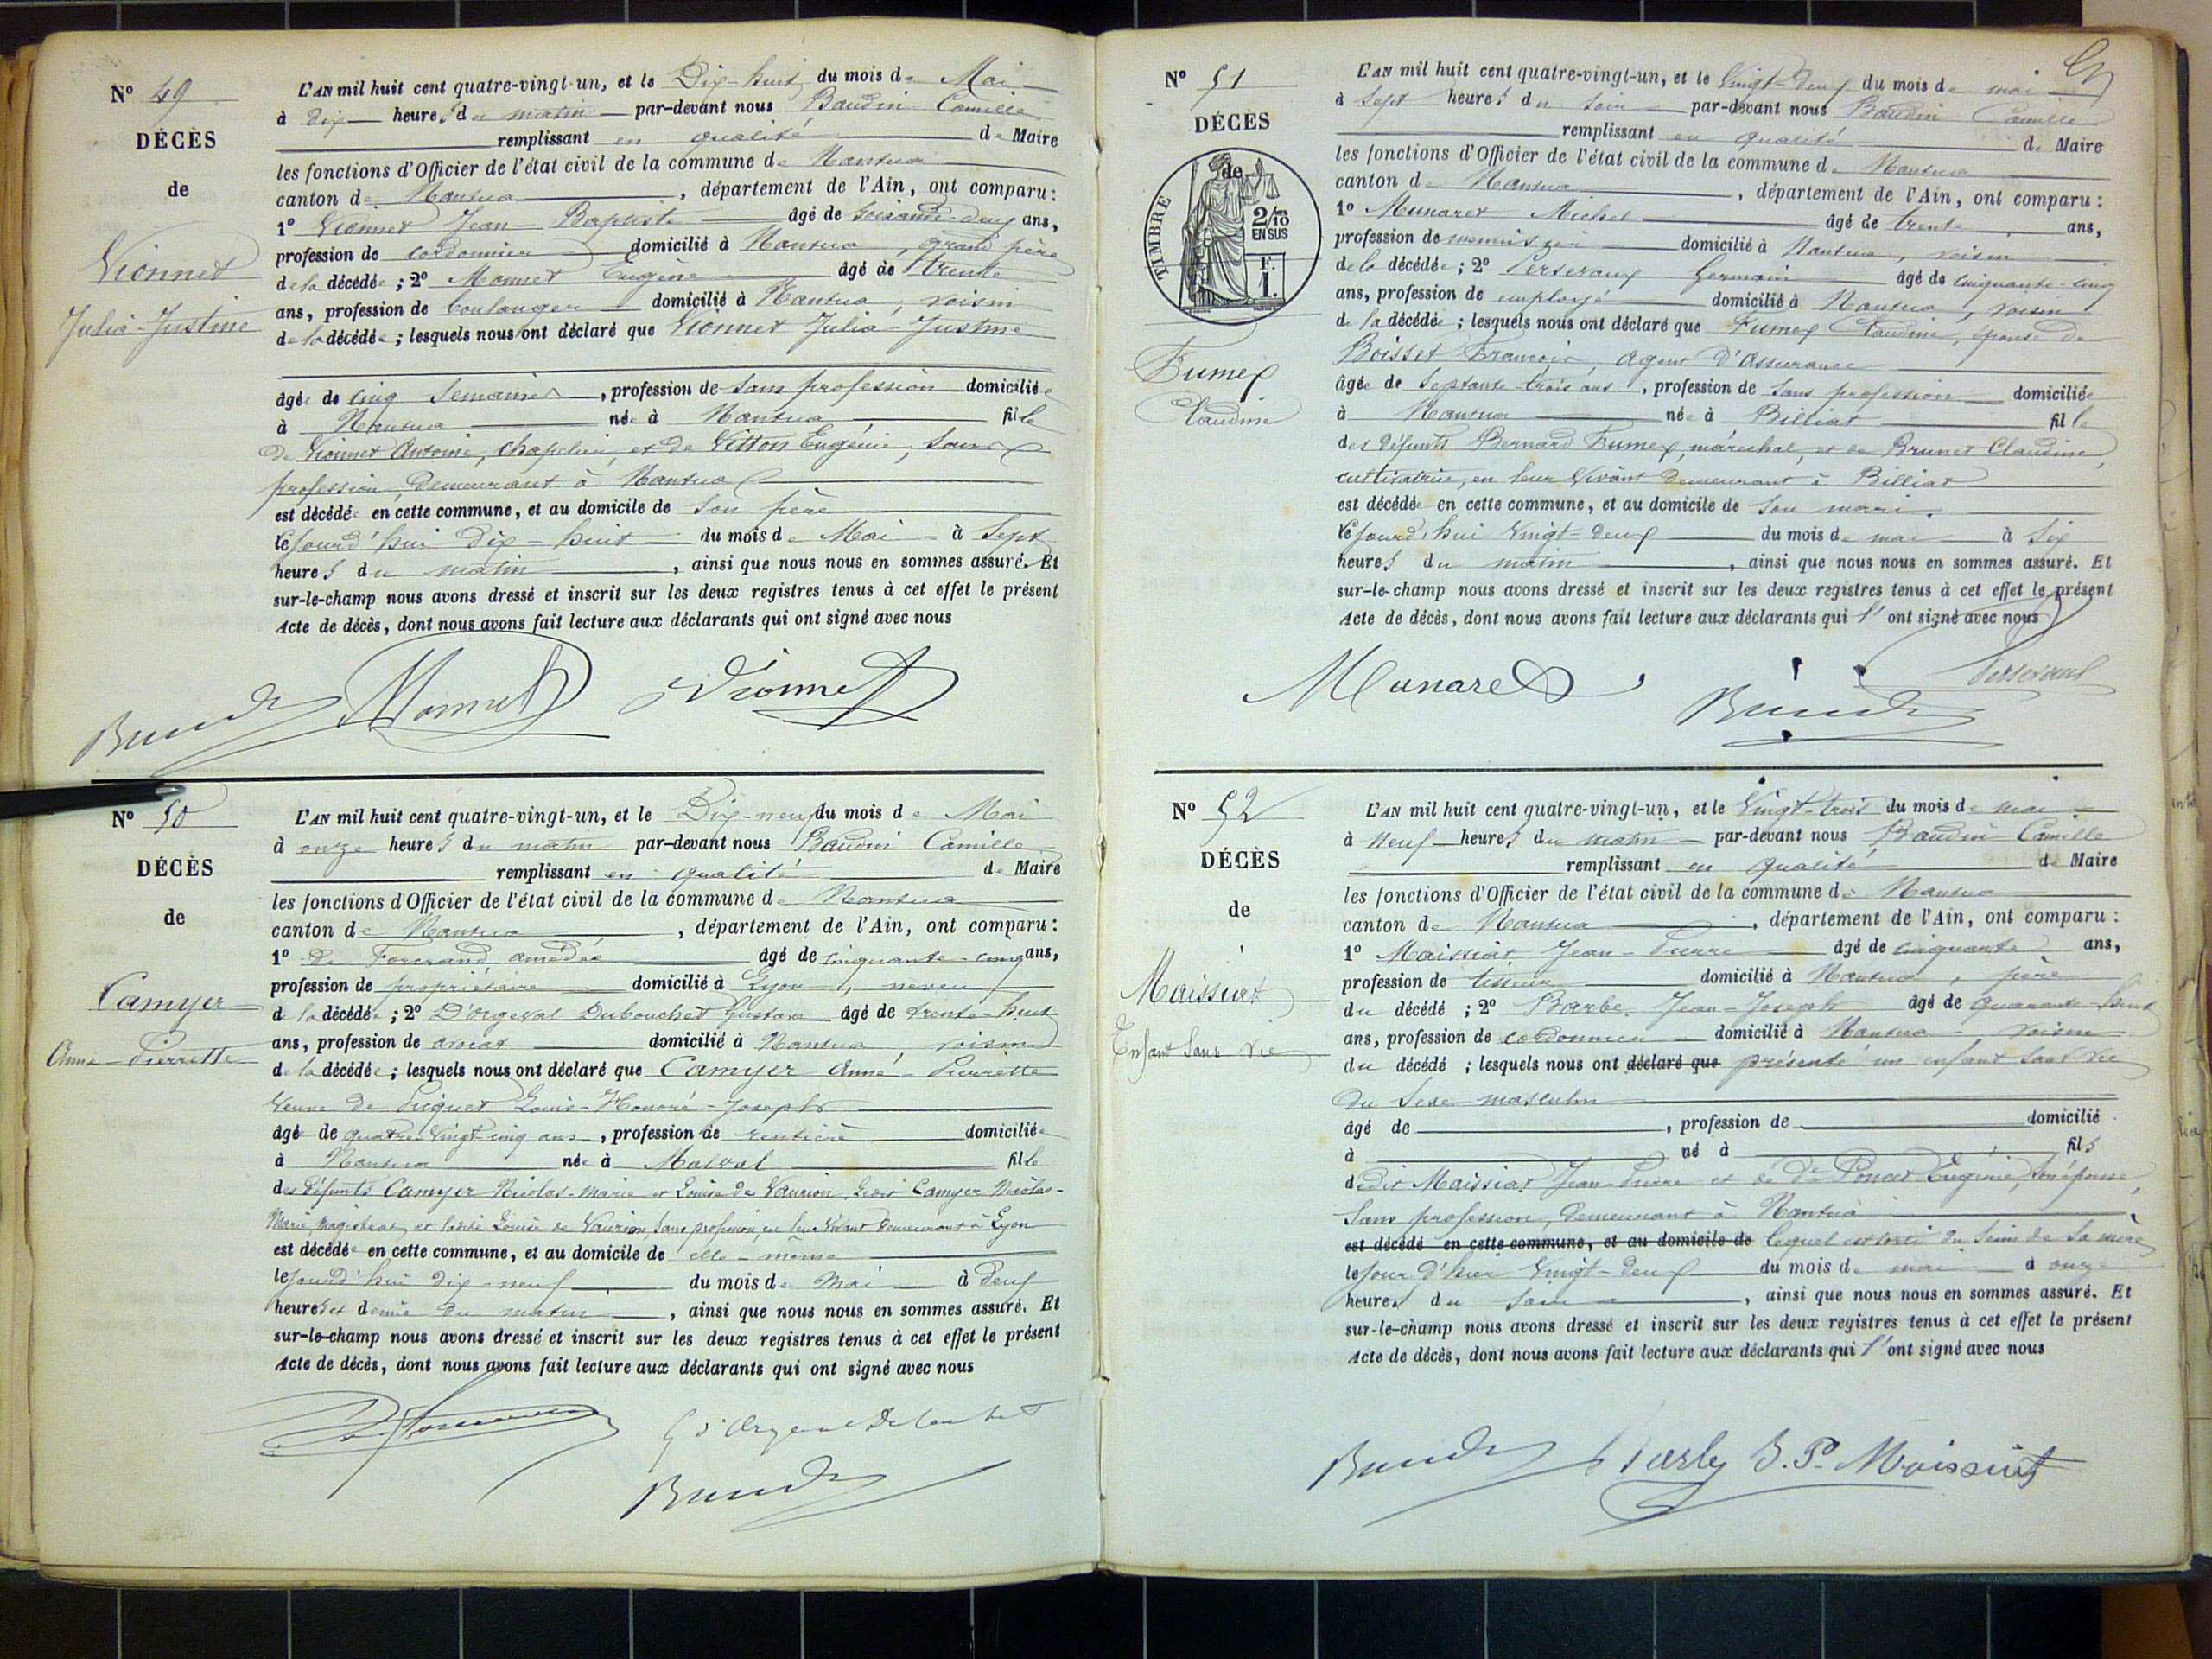 N° 49
DÉCÈS
de
Vionnet
Julia-Justine
L'AN mil huit cent quatre-vingt-un, et le Dix-huit du mois de Mai
à dix heures du matin par-devant nous Baudin Camille
remplissant en qualité de Maire
les fonctions d'Officier de l'état civil de la commune de Nantua
canton de Nantua, département de l'Ain, ont comparu :
1° Vionnet Jean-Baptiste âgé de soixante-deux ans,
profession de cordonnier domicilié à Nantua, grand père
de la décédée ; 2° Monnet Eugène âgé de trente
ans, profession de boulanger domicilié à Nantua, voisin
de la décédée ; lesquels nous ont déclaré que Vionnet Julia-Justine
âgée de cinq semaines, profession de sans profession domiciliée
à Nantua née à Nantua fille
de Vionnet Antoine, chapelier, et de Vitton Eugénie, sans
profession, demeurant à Nantua
est décédée en cette commune, et au domicile de son père
le jourd'hui dix-huit du mois de Mai à sept
heures du matin, ainsi que nous nous en sommes assuré. Et
sur-le-champ nous avons dressé et inscrit sur les deux registres tenus à cet effet le présent
Acte de décès, dont nous avons fait lecture aux déclarants qui ont signé avec nous
Baudin Monnet Vionnet
N° 50
DÉCÈS
de
Camyer
Anne-Pierrette
L'AN mil huit cent quatre-vingt-un, et le Dix-neuf du mois de Mai
à onze heures du matin par-devant nous Baudin Camille
remplissant en qualité de Maire
les fonctions d'Officier de l'état civil de la commune de Nantua
canton de Nantua, département de l'Ain, ont comparu :
1° de Forcrand amédée âgé de cinquante-cinq ans,
profession de propriétaire domicilié à Lyon, neveu
de la décédée ; 2° D'orgeval Dubouchet Gustave âgé de trente-huit
ans, profession de avocat domicilié à Nantua, voisin
de la décédée ; lesquels nous ont déclaré que Camyer Anne-Pierrette
Veuve de Louis-Honoré-Joseph
âgée de quatre-vingt-cinq ans, profession de rentière domiciliée
à Nantua née à fille
des défunts Camyer Nicolas-Marie et Louise de Vaurion, Camyer Nicolas-
Marie, magistrat, et Louise de Vaurion, sans profession, en leur vivant demeurant à Lyon
est décédée en cette commune, et au domicile de elle-même
le jourd'hui dix-neuf du mois de Mai à deux
heures et demie du matin, ainsi que nous nous en sommes assuré. Et
sur-le-champ nous avons dressé et inscrit sur les deux registres tenus à cet effet le présent
Acte de décès, dont nous avons fait lecture aux déclarants qui ont signé avec nous
G d'Orgeval Dubouchet
Baudin
N° 51
DÉCÈS
de
TIMBRE
2/10 EN SUS
F. 1.
Fumex
Claudine
L'AN mil huit cent quatre-vingt-un, et le Vingt-deux du mois de mai
à sept heures du soir par-devant nous Baudin Camille
remplissant en qualité de Maire
les fonctions d'Officier de l'état civil de la commune de Nantua
canton de Nantua, département de l'Ain, ont comparu :
1° Munaret Michel âgé de trente ans,
profession de menuisier domicilié à Nantua, voisin
de la décédée ; 2° Perseraux Germain âgé de cinquante-cinq
ans, profession de employé domicilié à Nantua, voisin
de la décédée ; lesquels nous ont déclaré que Fumex Claudine, épouse de
Boisset François, Agent d'Assurance
âgée de septante trois ans, profession de sans profession domiciliée
à Nantua née à Billiat fille
des défunts Bernard Fumex, maréchal, et de Brunet Claudine,
cultivatrice, en leur vivant demeurant à Billiat
est décédée en cette commune, et au domicile de son mari
le jourd'hui vingt-deux du mois de mai à six
heures du matin, ainsi que nous nous en sommes assuré. Et
sur-le-champ nous avons dressé et inscrit sur les deux registres tenus à cet effet le présent
Acte de décès, dont nous avons fait lecture aux déclarants qui l'ont signé avec nous
Munaret Baudin
N° 52
DÉCÈS
de
Maissiat
Enfant sans vie
L'AN mil huit cent quatre-vingt-un, et le Vingt-trois du mois de mai
à neuf heures du matin par-devant nous Baudin Camille
remplissant en qualité de Maire
les fonctions d'Officier de l'état civil de la commune de Nantua
canton de Nantua, département de l'Ain, ont comparu :
1° Maissiat Jean-Pierre âgé de cinquante ans,
profession de tisseur domicilié à Nantua, père
du décédé ; 2° Barbe Jean-Joseph âgé de quarante-huit
ans, profession de cordonnier domicilié à Nantua, voisin
du décédé ; lesquels nous ont déclaré que présenté un enfant sans vie
du sexe masculin
âgé de , profession de domicilié
à né à fils
dudit Maissiat Jean-Pierre et de De Poncet Eugénie, son épouse,
sans profession, demeurant à Nantua
est décédé en cette commune, et au domicile de lequel est sorti du sein de sa mère
le jour d'hier vingt-deux du mois de mai à onze
heures du soir, ainsi que nous nous en sommes assuré. Et
sur-le-champ nous avons dressé et inscrit sur les deux registres tenus à cet effet le présent
Acte de décès, dont nous avons fait lecture aux déclarants qui l'ont signé avec nous
Baudin J. P. Maissiat